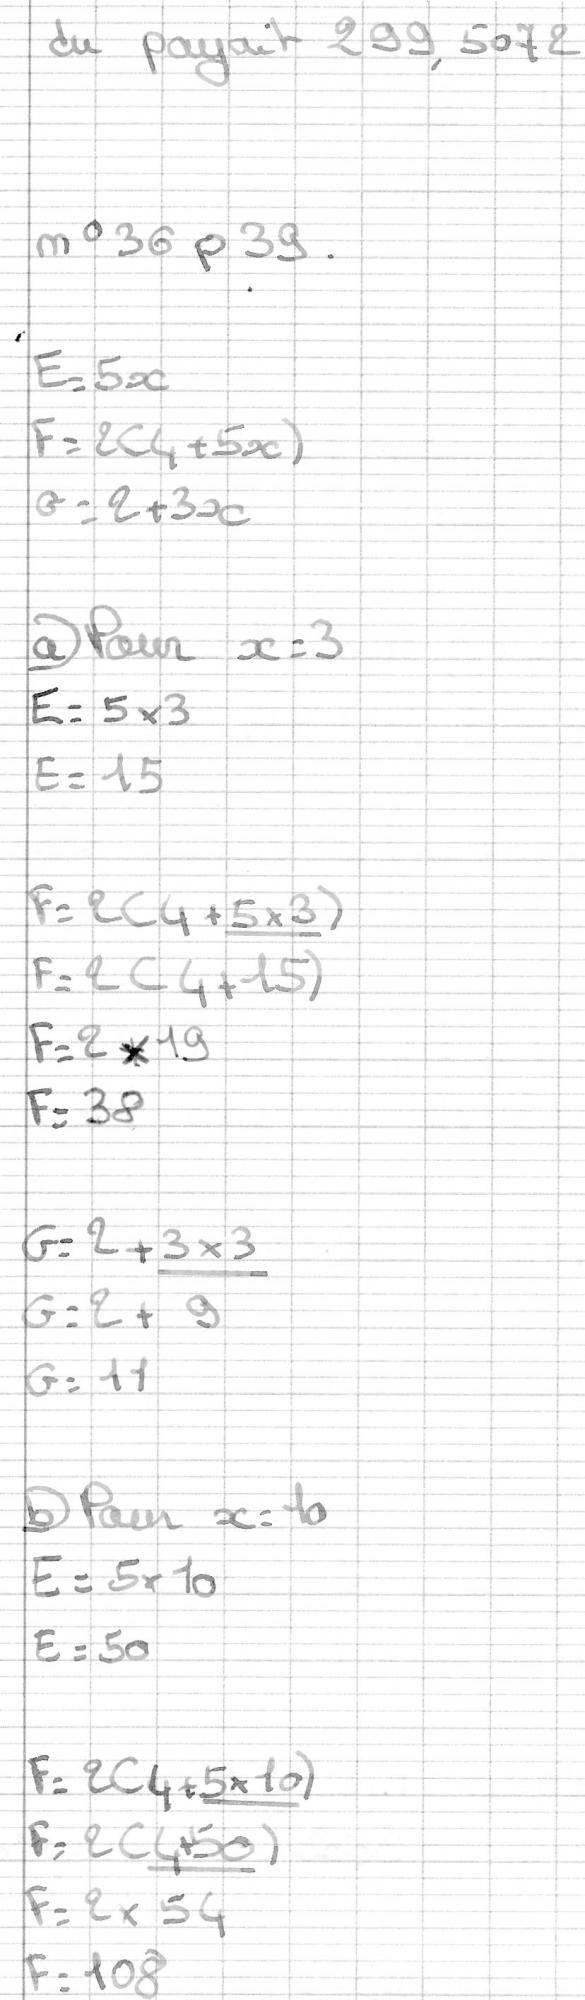 du payait 299,5072
n°36 p39.
E=5x
F=2(4+5x)
G=2+3x
a) Pour x=3
E=5×3
E=15
F=2(4+5×3)
F=2(4+15)
F=2×19
F=38
G=2+3×3
G=2+9
G=11
b) Pour x=10
E=5×10
E=50
F=2(4+5×10)
F=2(4+50)
F=2×54
F=108